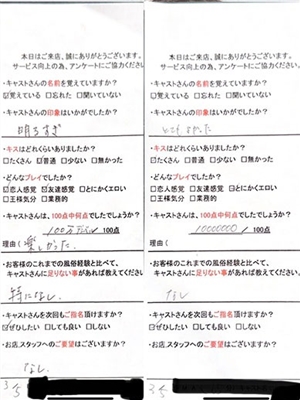 本日はご来店、誠にありがとうございます。
サービス向上の為、アンケートにご協力ください
・キャストさんの名前を覚えていますか?
☑覚えている □忘れた □聞いていない
・キャストさんの印象はいかがでしたか?
明るすぎ
・キスはどれくらいありましたか?
□たくさん ☑普通 □少ない □無かった
・どんなプレイでしたか?
☑恋人感覚 ☑友達感覚 □とにかくエロい
□王様気分 □業務的
・キャストさんは、100点中何点でしたでしょうか?
/ 100点
理由(
・お客様のこれまでの風俗経験と比べて、
キャストさんに足りない事があれば教えてください
特になし
・キャストさんを次回もご指名頂けますか?
☑ぜひしたい □しても良い □しない
・お店スタッフへのご要望はございますか?
なし
3/5
本日はご来店、誠にありがとうございます。
サービス向上の為、アンケートにご協力ください
・キャストさんの名前を覚えていますか?
☑覚えている □忘れた □聞いていない
・キャストさんの印象はいかがでしたか?
とてもよかった
・キスはどれくらいありましたか?
☑たくさん □普通 □少ない □無かった
・どんなプレイでしたか?
☑恋人感覚 □友達感覚 ☑とにかくエロい
□王様気分 □業務的
・キャストさんは、100点中何点でしたでしょうか?
10000000 / 100点
理由(
・お客様のこれまでの風俗経験と比べて、
キャストさんに足りない事があれば教えてください
なし
・キャストさんを次回もご指名頂けますか?
☑ぜひしたい □しても良い □しない
・お店スタッフへのご要望はございますか?
3/5